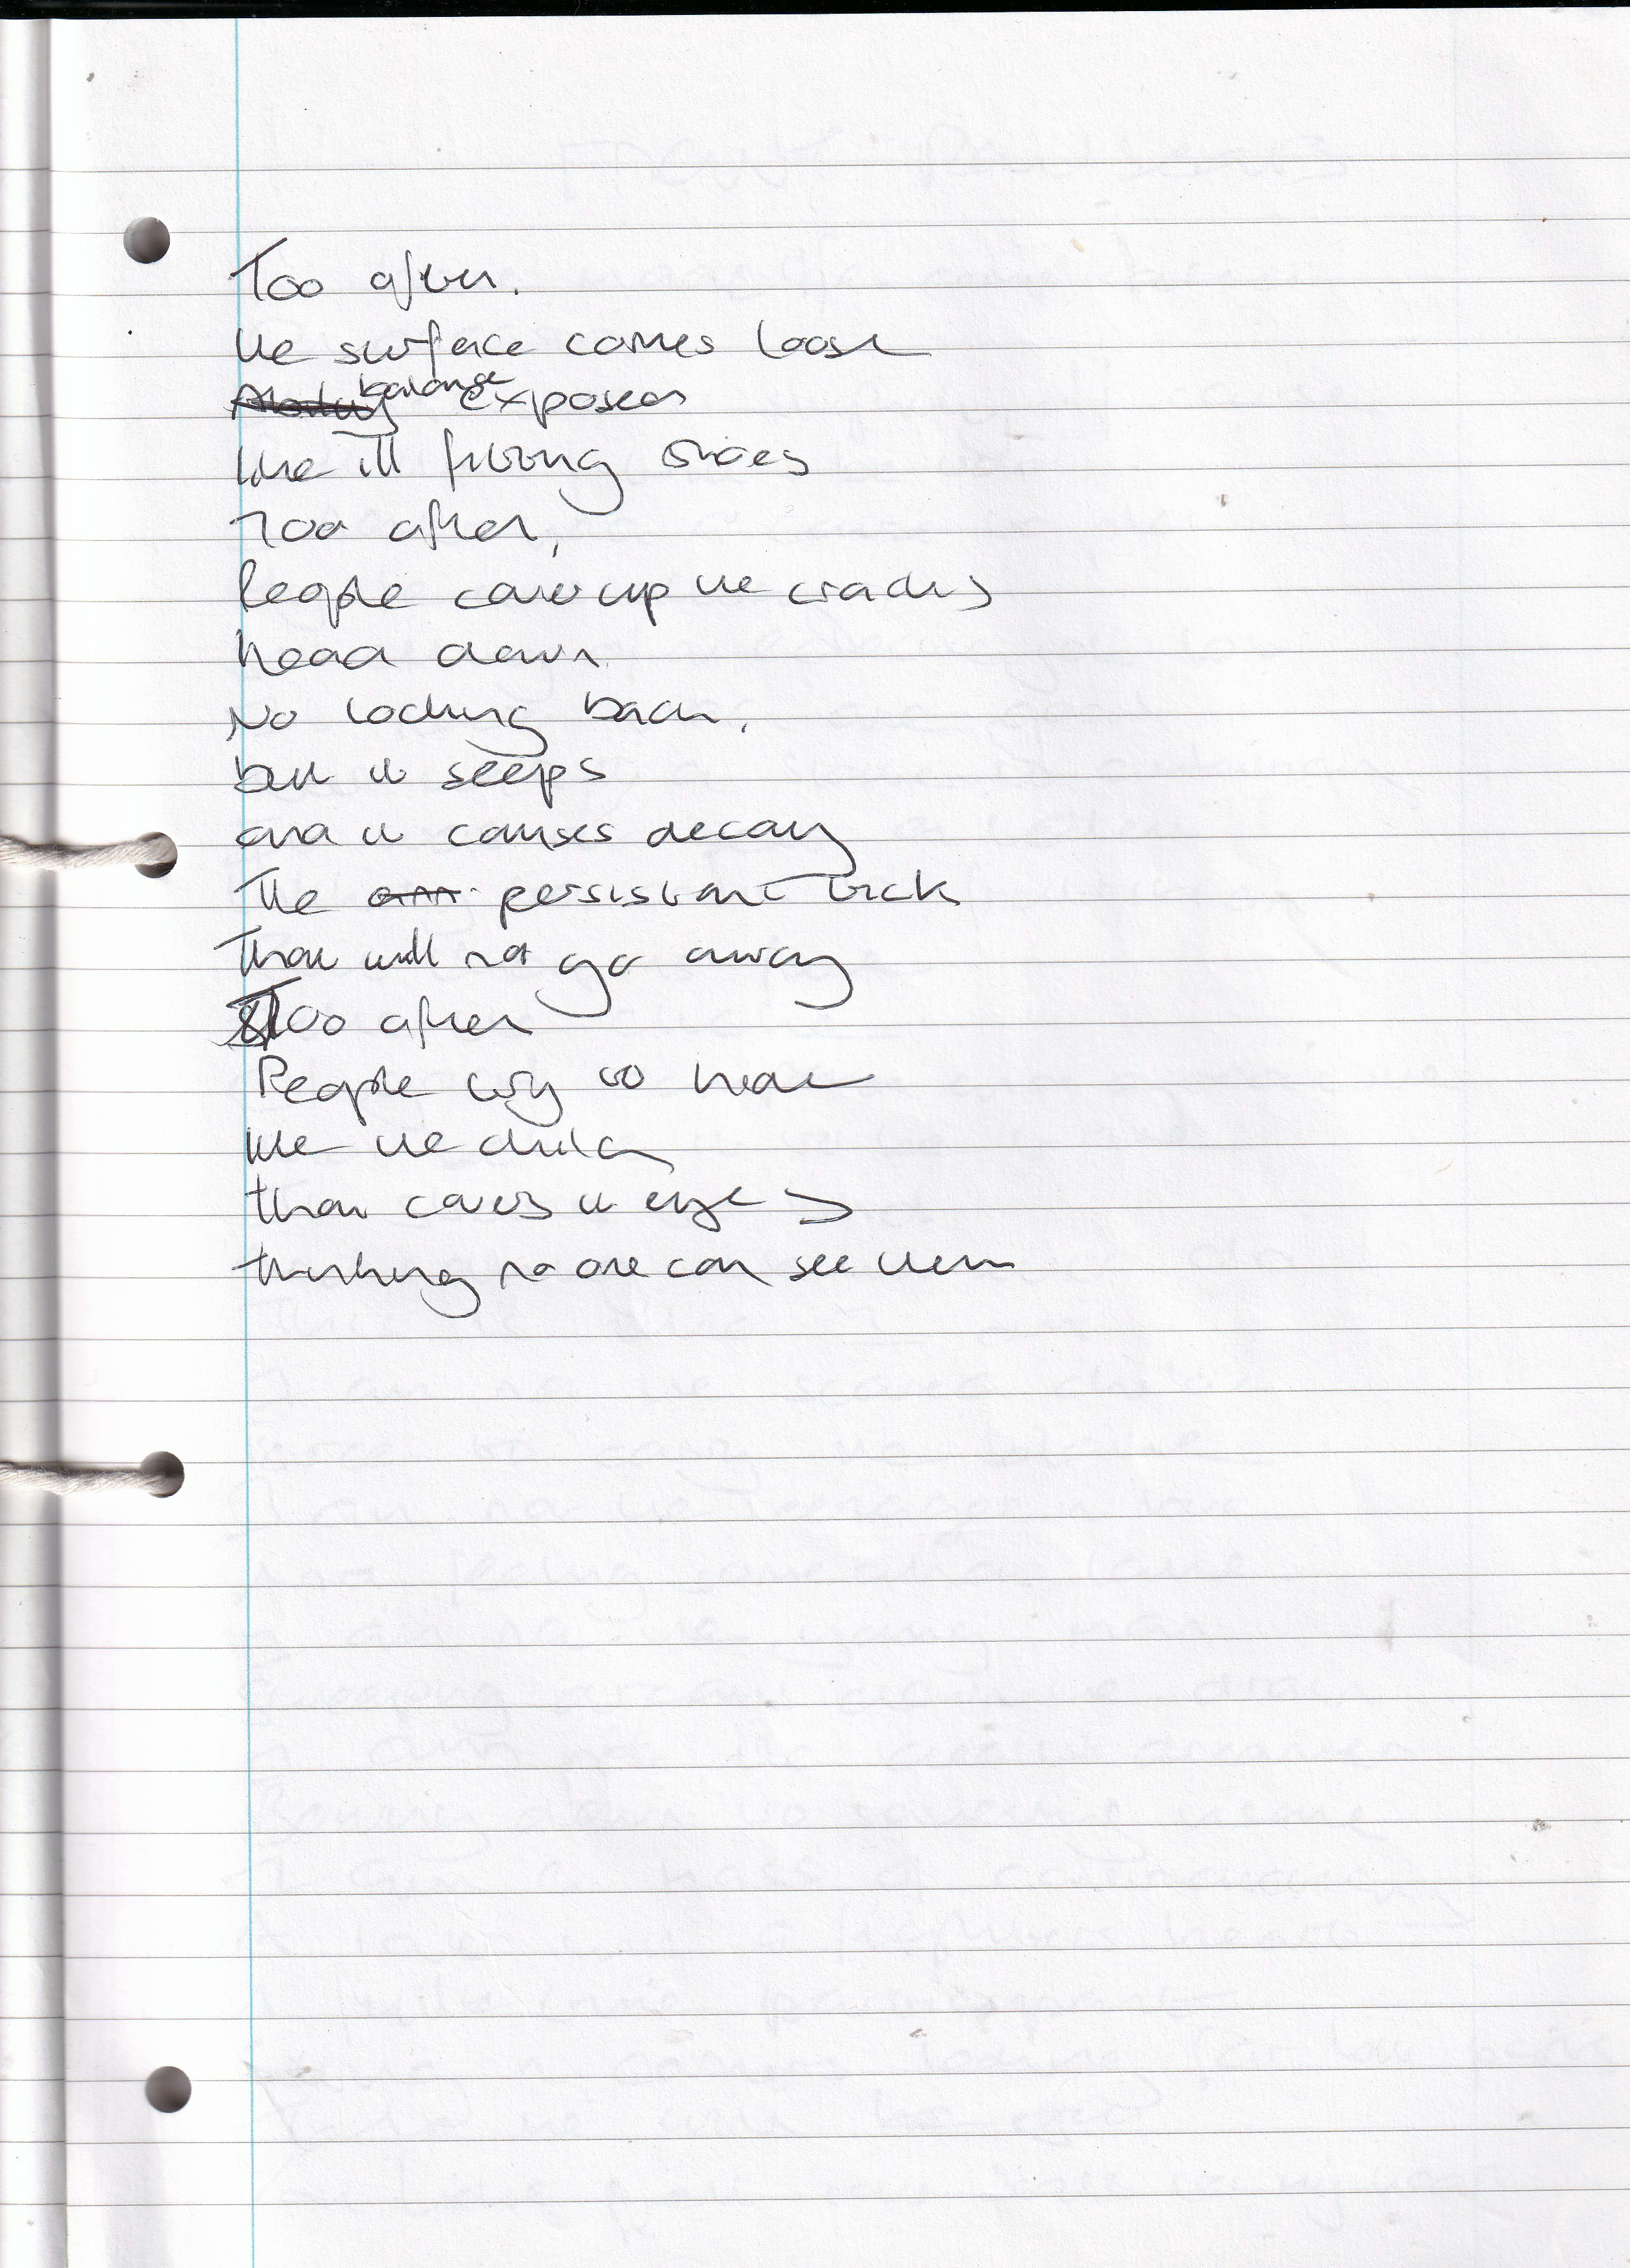 Too often.
the surface comes loose
balance exposed
like ill fitting shoes
Too often,
People cover up the cracks
head down
No looking back.
but it seeps
and it causes decay
The persistant tick
That will not go away
Too often
People try to hide
like the child
that covers it eyes
thinking no one can see them